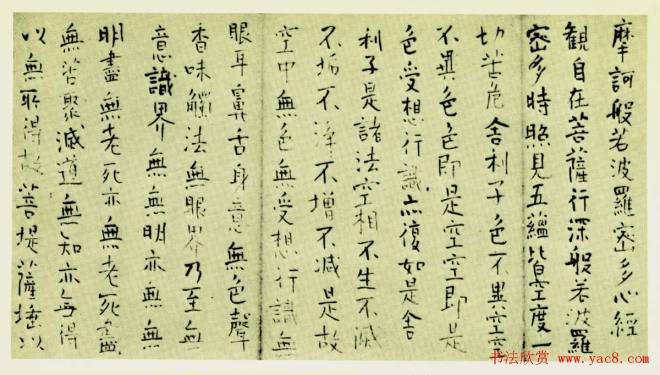 摩訶般若波羅蜜多心經
観自在菩薩行深般若波羅
蜜多時照見五蘊皆空度一
切苦厄舍利子色不異空空
不異色色即是空空即是
色受想行識亦復如是舍
利子是諸法空相不生不滅
不垢不淨不增不減是故
空中無色無受想行識無
眼耳鼻舌身意無色聲
香味觸法無眼界乃至無
意識界無無明亦無無
明盡無老死亦無老死盡
無苦聚滅道無知亦無得
以無所得故菩提薩埵以
书法欣赏 www.yac8.com